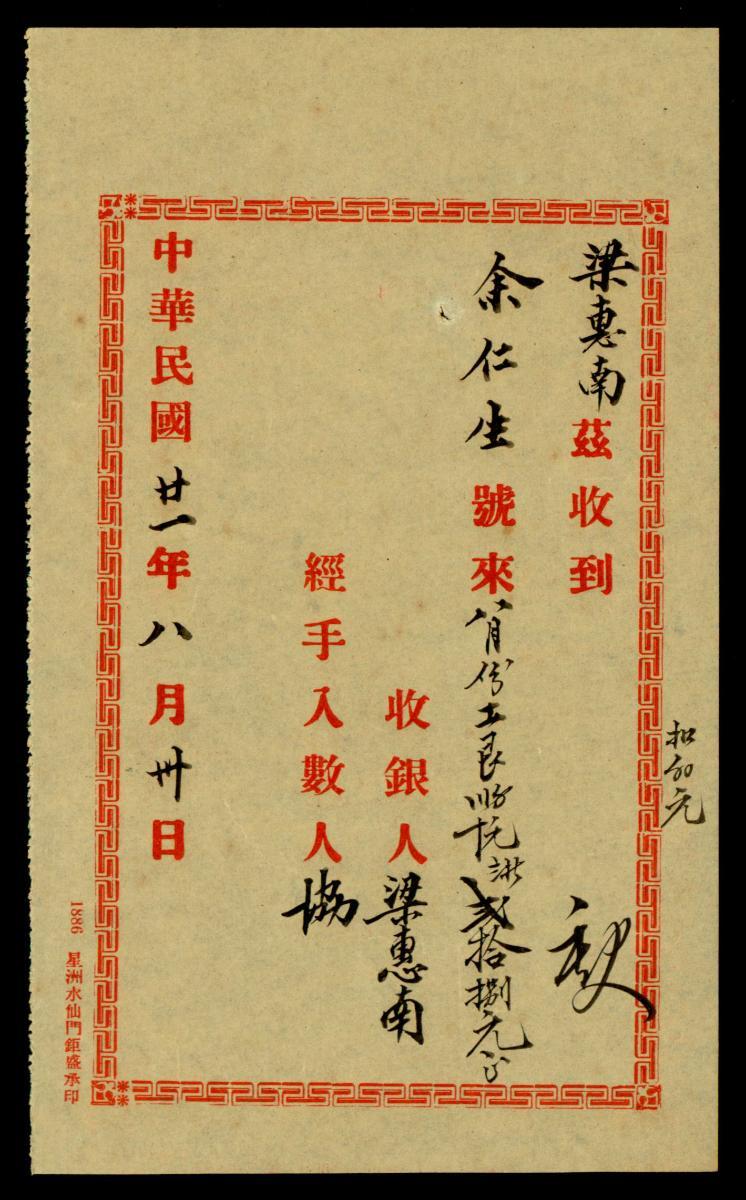 梁惠南茲收到
余仁生號來八月份工艮 計貳拾捌元
收銀人梁惠南
經手入數人協
中華民國廿一年八月卅日
1886 星洲水仙門鉅盛承印